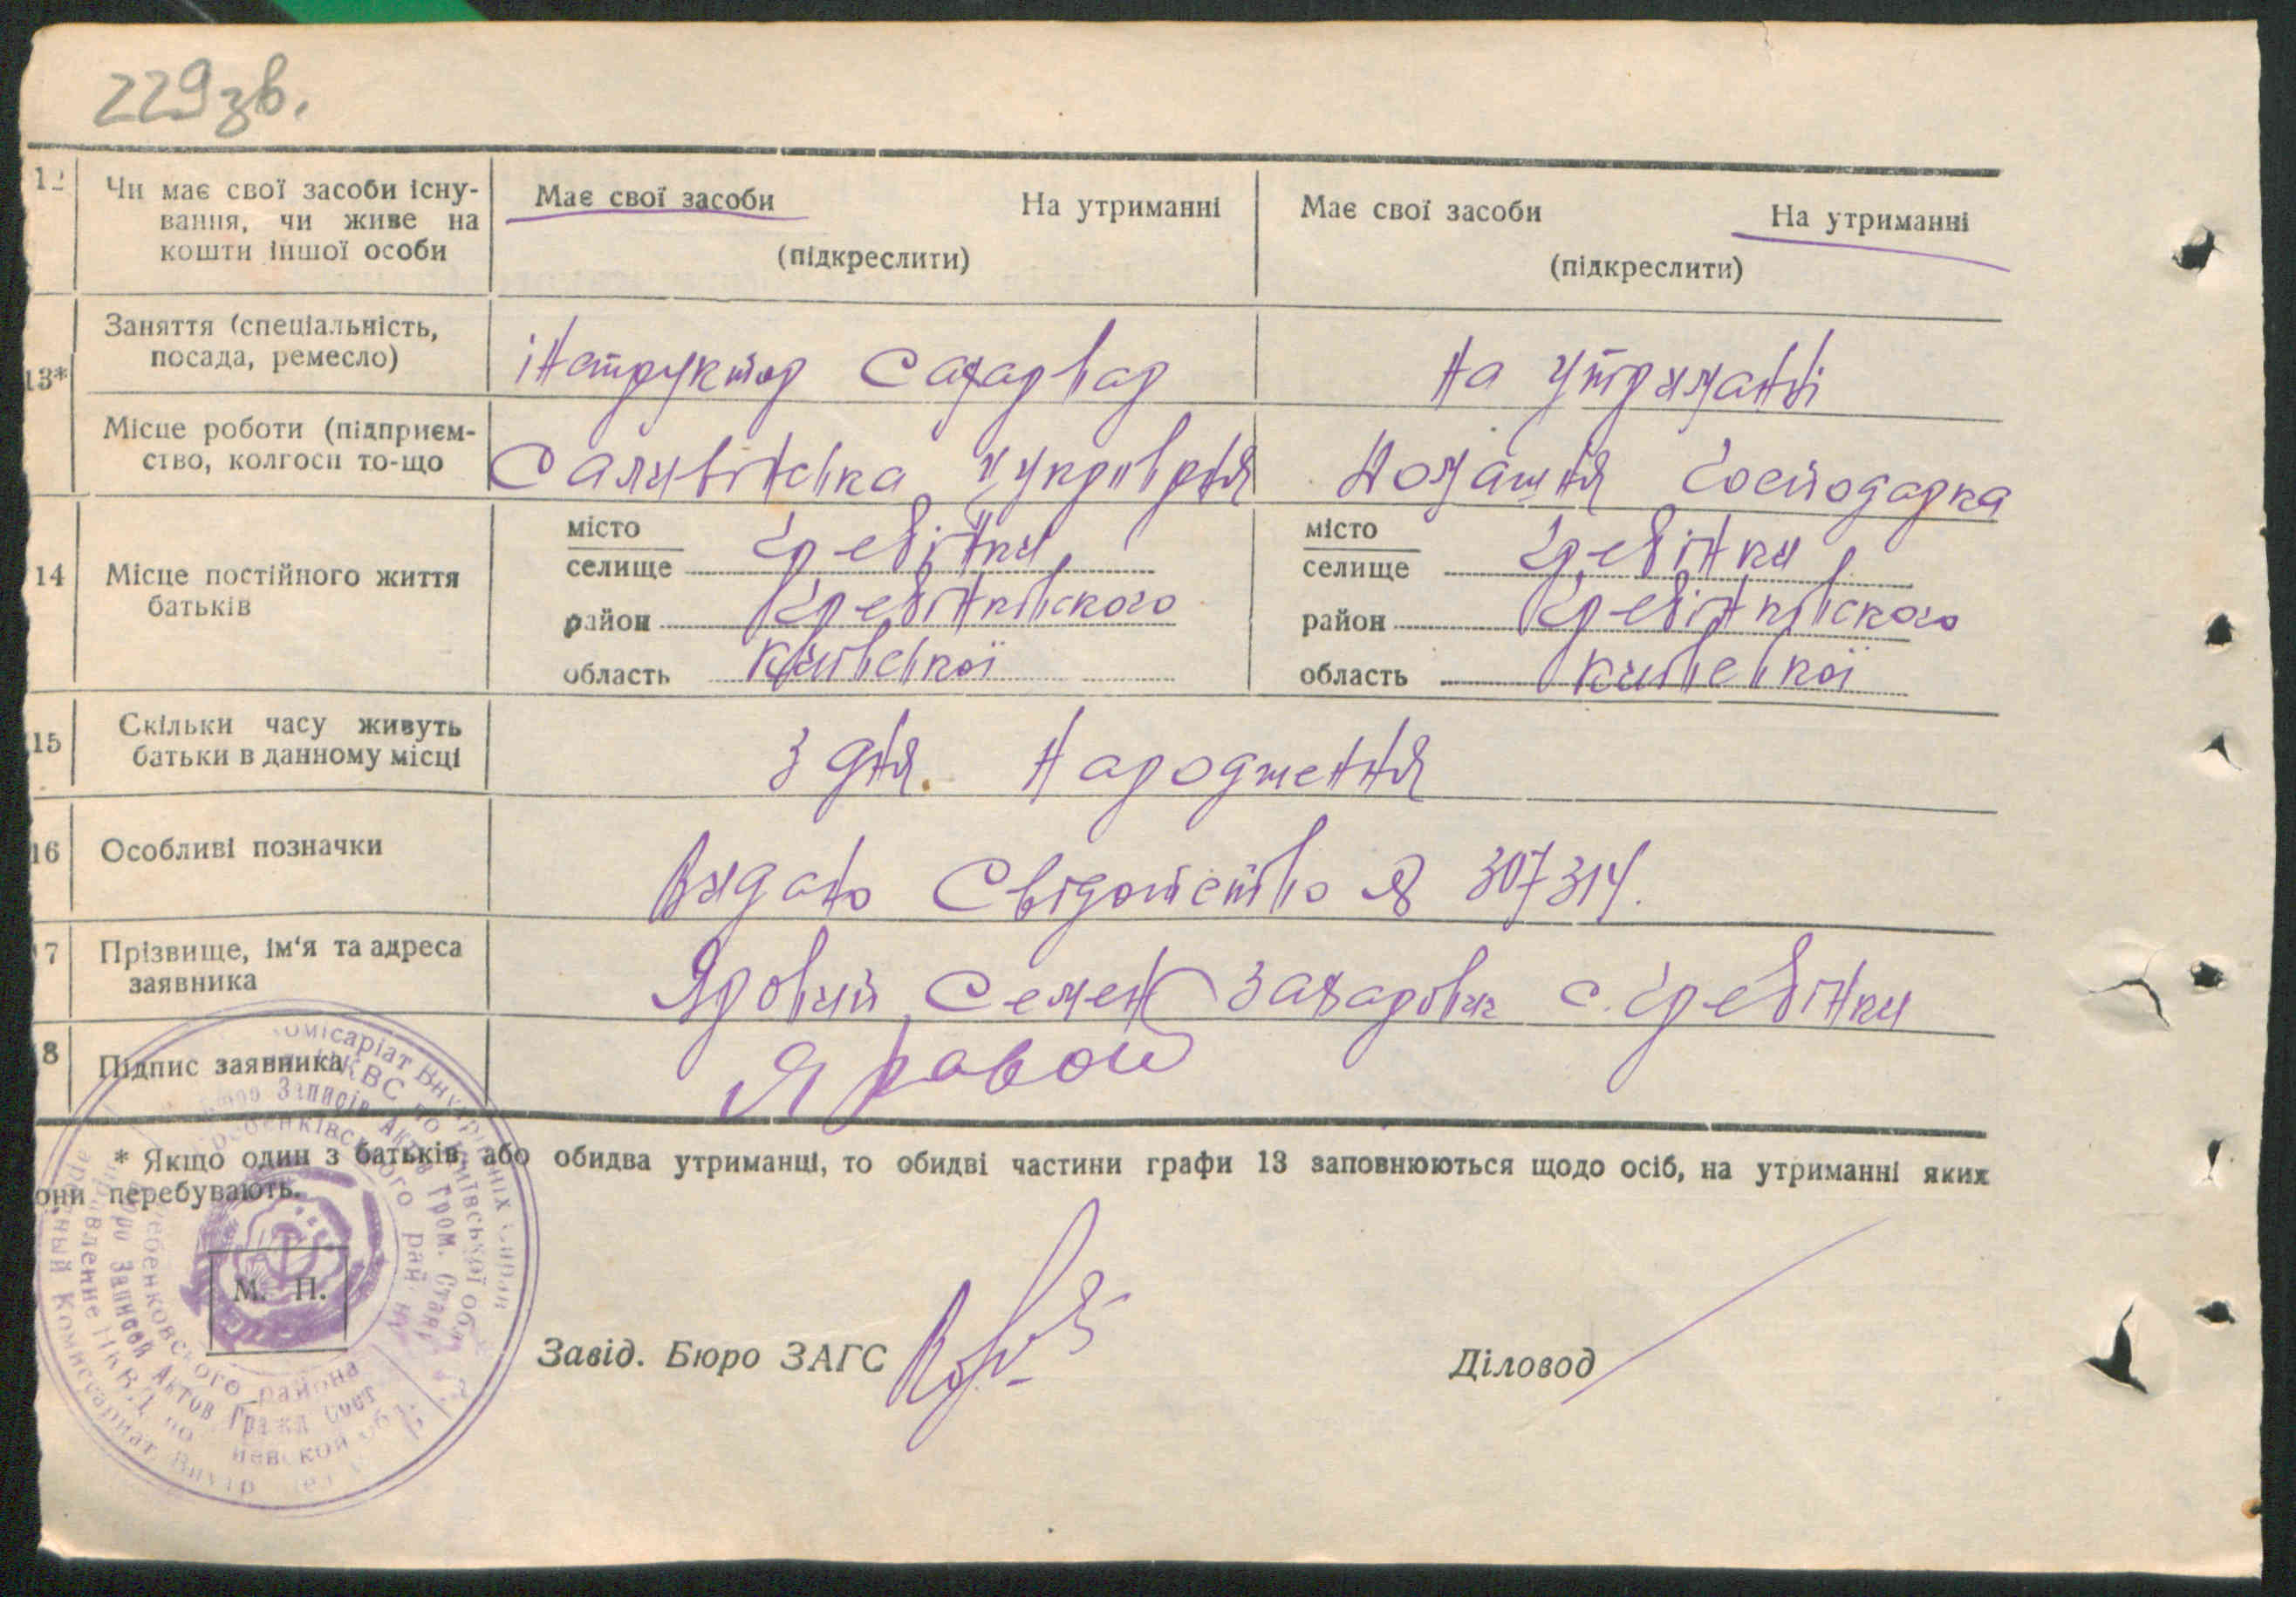 229зв.
12 Чи має свої засоби існу-
вання, чи живе на
кошти іншої особи
Має свої засоби На утриманні
(підкреслити)
Має свої засоби На утриманні
(підкреслити)
13* Заняття (спеціальність,
посада, ремесло)
інструктор Сахарвар
На утриманні
Місце роботи (підприєм-
ство, колгосп то-що
Саливінська цукровня
Домашня господарка
14 Місце постійного життя
батьків
місто
селище Гребінки
район Гребінківського
область Київської
місто
селище Гребінки
район Гребінківського
область Київської
15 Скільки часу живуть
батьки в данному місці
З дня народження
16 Особливі позначки
Видано Свідотство № 307314.
17 Прізвище, ім'я та адреса
заявника
Яровий Семен Захарович с. Гребінки
18 Підпис заявника
Яравой
* Якщо один з батьків, або обидва утриманці, то обидві частини графи 13 заповнюються щодо осіб, на утриманні яких
они перебувають.
М. П.
Завід. Бюро ЗАГС
Діловод